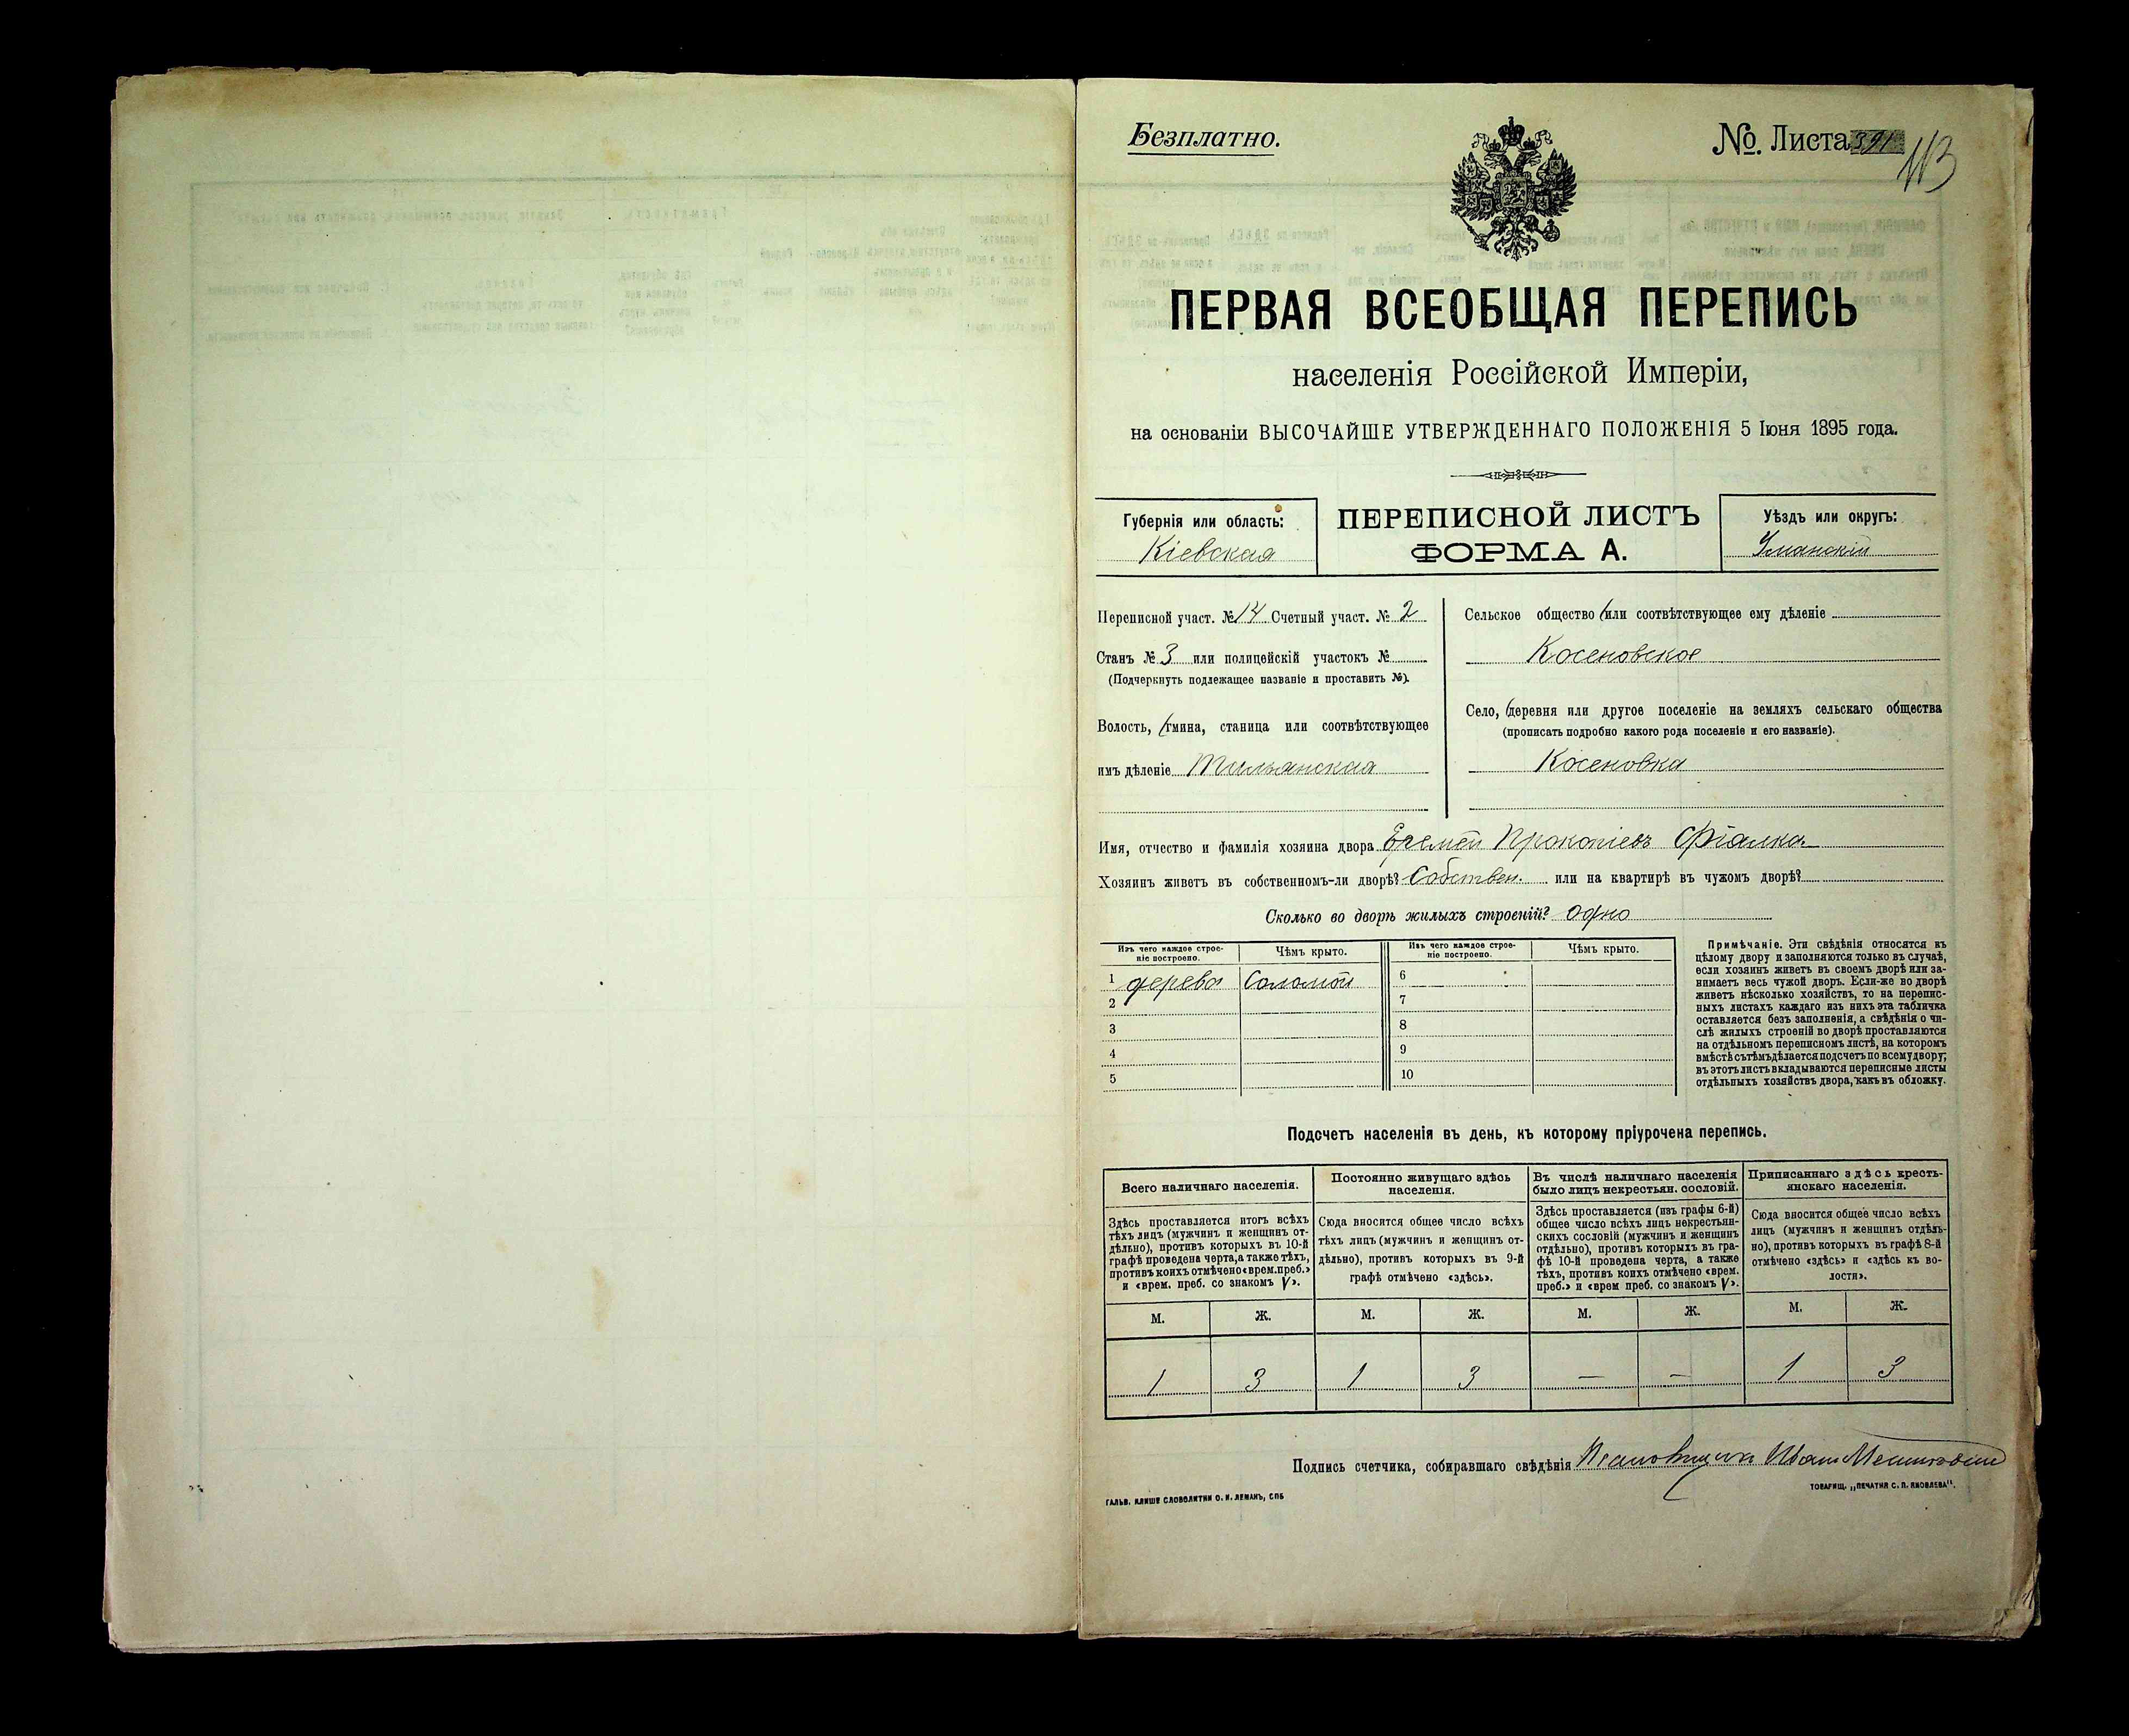 Безплатно.
№ Листа 391
113
ПЕРВАЯ ВСЕОБЩАЯ ПЕРЕПИСЬ
населенія Россійской Имперіи,
на основаніи ВЫСОЧАЙШЕ УТВЕРЖДЕННАГО ПОЛОЖЕНІЯ 5 Іюня 1895 года.
Губернія или область:
Кіевская
ПЕРЕПИСНОЙ ЛИСТЪ
ФОРМА А.
Уѣздъ или округъ:
Уманскій
Переписной участ. № 14 Счетный участ. № 2
Станъ № 3 или полицейскій участокъ №
(Подчеркнуть подлежащее названіе и проставить №).
Волость, (гмина, станица или соотвѣтствующее
имъ дѣленіе
Сельское общество (или соотвѣтствующее ему дѣленіе
Косеновское
Село, (деревня или другое поселеніе на земляхъ сельскаго общества
(прописать подробно какого рода поселеніе и его названіе).
Косеновка
Имя, отчество и фамилія хозяина двора Еремѣй Прокопіевъ Фіалка
Хозяинъ живетъ въ собственномъ-ли дворѣ? Собствен. или на квартирѣ въ чужомъ дворѣ?
Сколько во дворѣ жилыхъ строеній? одно
Изъ чего каждое строе-
ніе построено.
Чѣмъ крыто.
Изъ чего каждое строе-
ніе построено.
Чѣмъ крыто.
1 дерева Соломой
2
3
4
5
6
7
8
9
10
Примѣчаніе. Эти свѣдѣнія относятся къ
цѣлому двору и заполняются только въ случаѣ,
если хозяинъ живетъ въ своемъ дворѣ или за-
нимаетъ весь чужой дворъ. Если-же во дворѣ
живетъ нѣсколько хозяйствъ, то на перепис-
ныхъ листахъ каждаго изъ нихъ эта табличка
оставляется безъ заполненія, а свѣдѣнія о чи-
слѣ жилыхъ строеній во дворѣ проставляются
на отдѣльномъ переписномъ листѣ, на которомъ
вмѣстѣ съ тѣмъ дѣлается подсчетъ по всему двору;
въ этотъ листъ вкладываются переписные листы
отдѣльныхъ хозяйствъ двора, какъ въ обложку.
Подсчетъ населенія въ день, къ которому пріурочена перепись.
Всего наличнаго населенія.
Здѣсь проставляется итогъ всѣхъ
тѣхъ лицъ (мужчинъ и женщинъ от-
дѣльно), противъ которыхъ въ 10-й
графѣ проведена черта, а также тѣхъ,
противъ коихъ отмѣчено «врем. преб.»
и «врем. преб. со знакомъ V».
Постоянно живущаго здѣсь
населенія.
Сюда вносится общее число всѣхъ
тѣхъ лицъ (мужчинъ и женщинъ от-
дѣльно), противъ которыхъ въ 9-й
графѣ отмѣчено «здѣсь».
Въ числѣ наличнаго населенія
было лицъ некрестьян. сословій.
Здѣсь проставляется (изъ графы 6-й)
общее число всѣхъ лицъ некрестьян-
скихъ сословій (мужчинъ и женщинъ
отдѣльно), противъ которыхъ въ гра-
фѣ 10-й проведена черта, а также
тѣхъ, противъ коихъ отмѣчено «врем.
преб.» и «врем преб. со знакомъ V».
Приписаннаго здѣсь кресть-
янскаго населенія.
Сюда вносится общее число всѣхъ
лицъ (мужчинъ и женщинъ отдѣль-
но), противъ которыхъ въ графѣ 8-й
отмѣчено «здѣсь» и «здѣсь къ во-
лости».
М. Ж. М. Ж. М. Ж. М. Ж.
1 3 1 3 — — 1 3
Подпись счетчика, собиравшаго свѣдѣнія
ГАЛЬВ. КЛИШЕ СЛОВОЛИТНИ О. И. ЛЕМАНЪ, СПБ
ТОВАРИЩ. „ПЕЧАТНЯ С. П. ЯКОВЛЕВА".